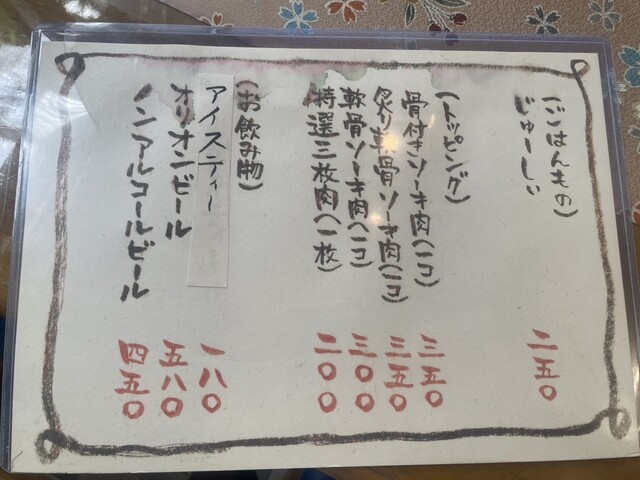 (ごはんもの)
じゅーしぃ 二五〇
(トッピング)
骨付きソーキ肉(一コ) 三五〇
炙り軟骨ソーキ肉(一コ) 三五〇
軟骨ソーキ肉(一コ) 三〇〇
特選三枚肉(一枚) 二〇〇
(お飲み物)
アイスティー 一八〇
オリオンビール 五八〇
ノンアルコールビール 四五〇